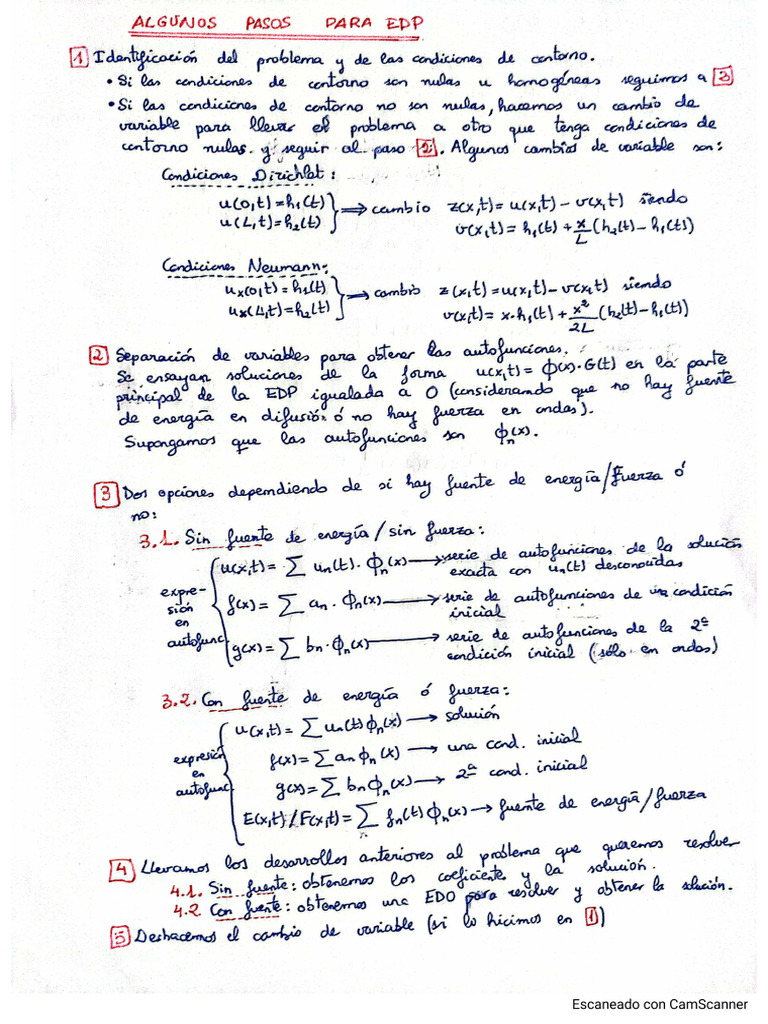 ALGUNOS PASOS PARA EDP
1 Identificación del problema y de las condiciones de contorno.
• Si las condiciones de contorno son nulas u homogéneas seguimos a 3
• Si las condiciones de contorno no son nulas, hacemos un cambio de
variable para llevar el problema a otro que tenga condiciones de
contorno nulas y seguir al paso 2. Algunos cambios de variable son:
Condiciones Dirichlet:
u(0,t)=h₁(t)
u(L,t)=h₂(t)
⟹ cambio z(x,t)=u(x,t)-v(x,t) siendo
v(x,t)=h₁(t)+x/L(h₂(t)-h₁(t))
Condiciones Neumann:
uₓ(0,t)=h₁(t)
uₓ(L,t)=h₂(t)
⟹ cambio z(x,t)=u(x,t)-v(x,t) siendo
v(x,t)=x·h₁(t)+x²/2L(h₂(t)-h₁(t))
2 Separación de variables para obtener las autofunciones.
Se ensayan soluciones de la forma u(x,t)=ϕ(x)·G(t) en la parte
principal de la EDP igualada a 0 (considerando que no hay fuente
de energía en difusión ó no hay fuerza en ondas).
Supongamos que las autofunciones son ϕₙ(x).
3 Dos opciones dependiendo de si hay fuente de energía/Fuerza ó
no:
3.1. Sin fuente de energía/sin fuerza:
expre-
sión
en
autofunc.
u(x,t)=∑uₙ(t)·ϕₙ(x) → serie de autofunciones de la solución
exacta con uₙ(t) desconocidas
f(x)=∑aₙ·ϕₙ(x) → serie de autofunciones de una condición
inicial
g(x)=∑bₙ·ϕₙ(x) → serie de autofunciones de la 2ª
condición inicial (sólo en ondas)
3.2. Con fuente de energía ó fuerza:
expresión
en
autofunc.
u(x,t)=∑uₙ(t)ϕₙ(x) → solución
f(x)=∑aₙϕₙ(x) → una cond. inicial
g(x)=∑bₙϕₙ(x) → 2ª cond. inicial
E(x,t)/F(x,t)=∑fₙ(t)ϕₙ(x) → fuente de energía/fuerza
4 Llevamos los desarrollos anteriores al problema que queremos resolver
4.1. Sin fuente: obtenemos los coeficiente y la solución.
4.2 Con fuente: obtenemos una EDO para resolver y obtener la solución.
5 Deshacemos el cambio de variable (si lo hicimos en 1)
Escaneado con CamScanner